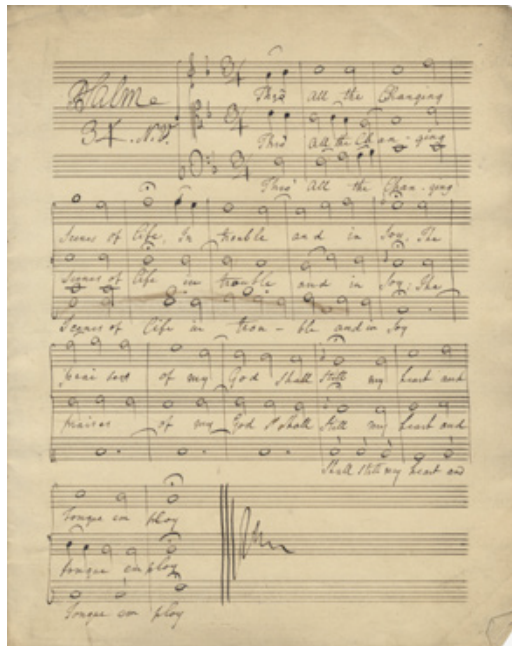 Psalm
34. N.V.
Thro' All the Changing
Thro' all the Chan - ging
Thro' All the Chan - ging
Scenes of life, In trouble and in Joy, The
Scenes of life in trouble and in Joy; The
Scenes of life in trou - ble and in Joy
of my God Shall Still my heart and
praises of my God Shall Still my heart and
Shall Still my heart and
Tongue em ploy
tongue em ploy
Tongue em ploy